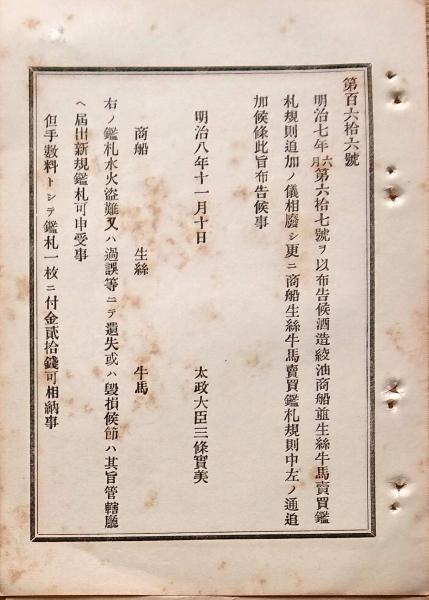 第百六拾六號
明治七年六月第六拾七號ヲ以布告候酒造絞油商船並生絲牛馬賣買鑑
札規則追加ノ儀相廢シ更ニ商船生絲牛馬賣買鑑札規則中左ノ通追
加候條此旨布告候事
明治八年十一月十日 太政大臣三條實美
商船 生絲 牛馬
右ノ鑑札水火盜難又ハ過誤等ニテ遺失或ハ毀損候節ハ其旨管轄廳
ヘ届出新規鑑札可申受事
但手數料トシテ鑑札一枚ニ付金貳拾錢可相納事